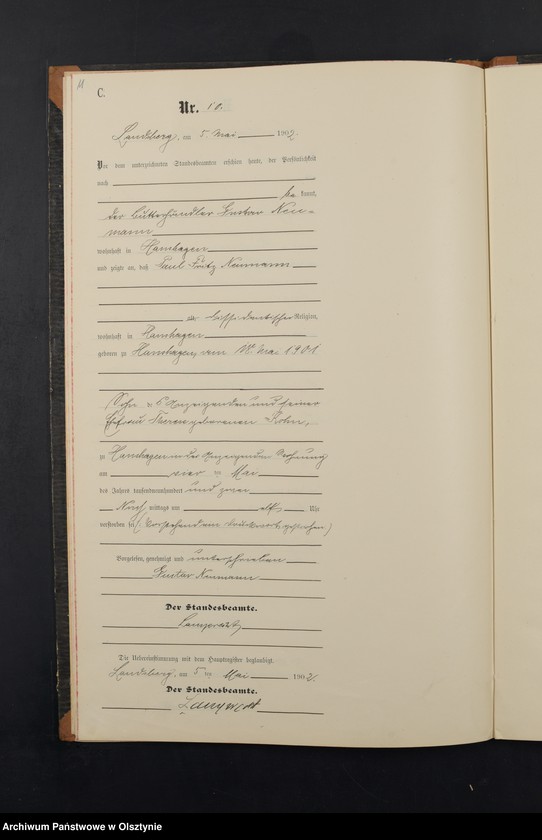 11
C.
Nr. 10.
Landsberg, am 5. Mai 1902.
Vor dem unterzeichneten Standesbeamten erschien heute, der Persönlichkeit
nach
kannt,
der Gustav Neu-
mann
wohnhaft in Hanshagen
und zeigte an, daß Paul Fritz Neumann
Religion,
wohnhaft in Hanshagen
geboren zu Hanshagen, am 18. Mai 1901
Sohn des Anzeigenden und seiner
Ehefrau geborenen
zu Hanshagen in des Anzeigenden Wohnung
am vier ten Mai
des Jahres tausendneunhundert und zwei
Nach mittags um elf Uhr
verstorben sei (Vorstehend ein Druckwort gestrichen)
Vorgelesen, genehmigt und unterschrieben
Gustav Neumann
Der Standesbeamte.
Die Uebereinstimmung mit dem Hauptregister beglaubigt.
Landsberg, am 5 ten Mai 1902.
Der Standesbeamte.
Archiwum Państwowe w Olsztynie